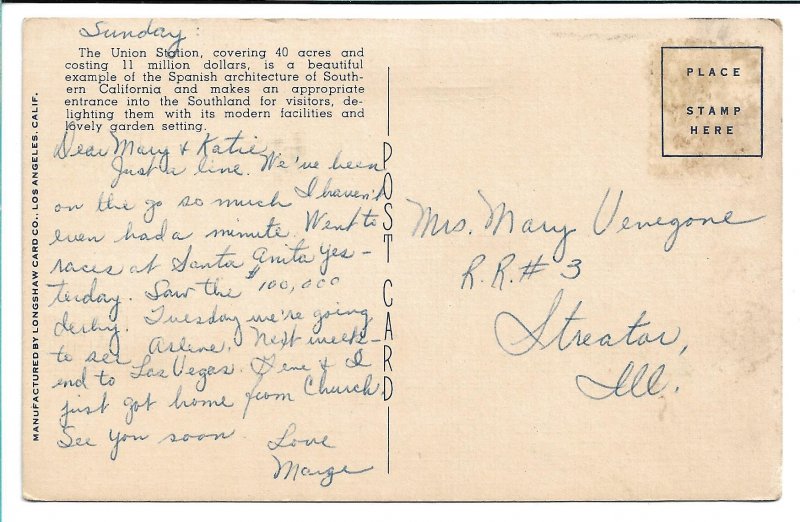 Sunday:
The Union Station, covering 40 acres and
costing 11 million dollars, is a beautiful
example of the Spanish architecture of South-
ern California and makes an appropriate
entrance into the Southland for visitors, de-
lighting them with its modern facilities and
lovely garden setting.
Dear Mary & Katie,
Just a line. We've been
on the go so much I haven't
even had a minute. Went to
races at Santa Anita yes-
terday. Saw the $100,000
derby. Tuesday we're going
to see Arlene. Next week-
end to Las Vegas. Gene & I
just got home from Church.
See you soon.
Love
Marge
MANUFACTURED BY LONGSHAW CARD CO., LOS ANGELES, CALIF.
POST CARD
PLACE
STAMP
HERE
Mrs. Mary Venegone
R.R. # 3
Streator,
Ill.